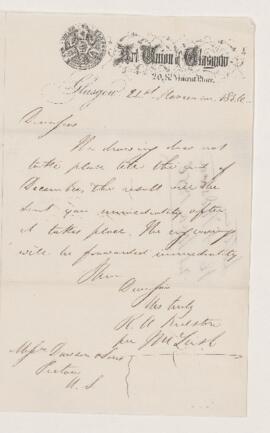 Art Union of Glasgow
20, St Vincent Place,
Glasgow 21st November 1856
Dear Sirs
The drawing does not
take place till the end of
December, the result will be
sent you immediately after
it takes place. The engravings
will be forwarded immediately
Dear Sirs
Yrs truly
R. A. Kidston
per
Messrs Dawson & Sons
Pictou
N. S